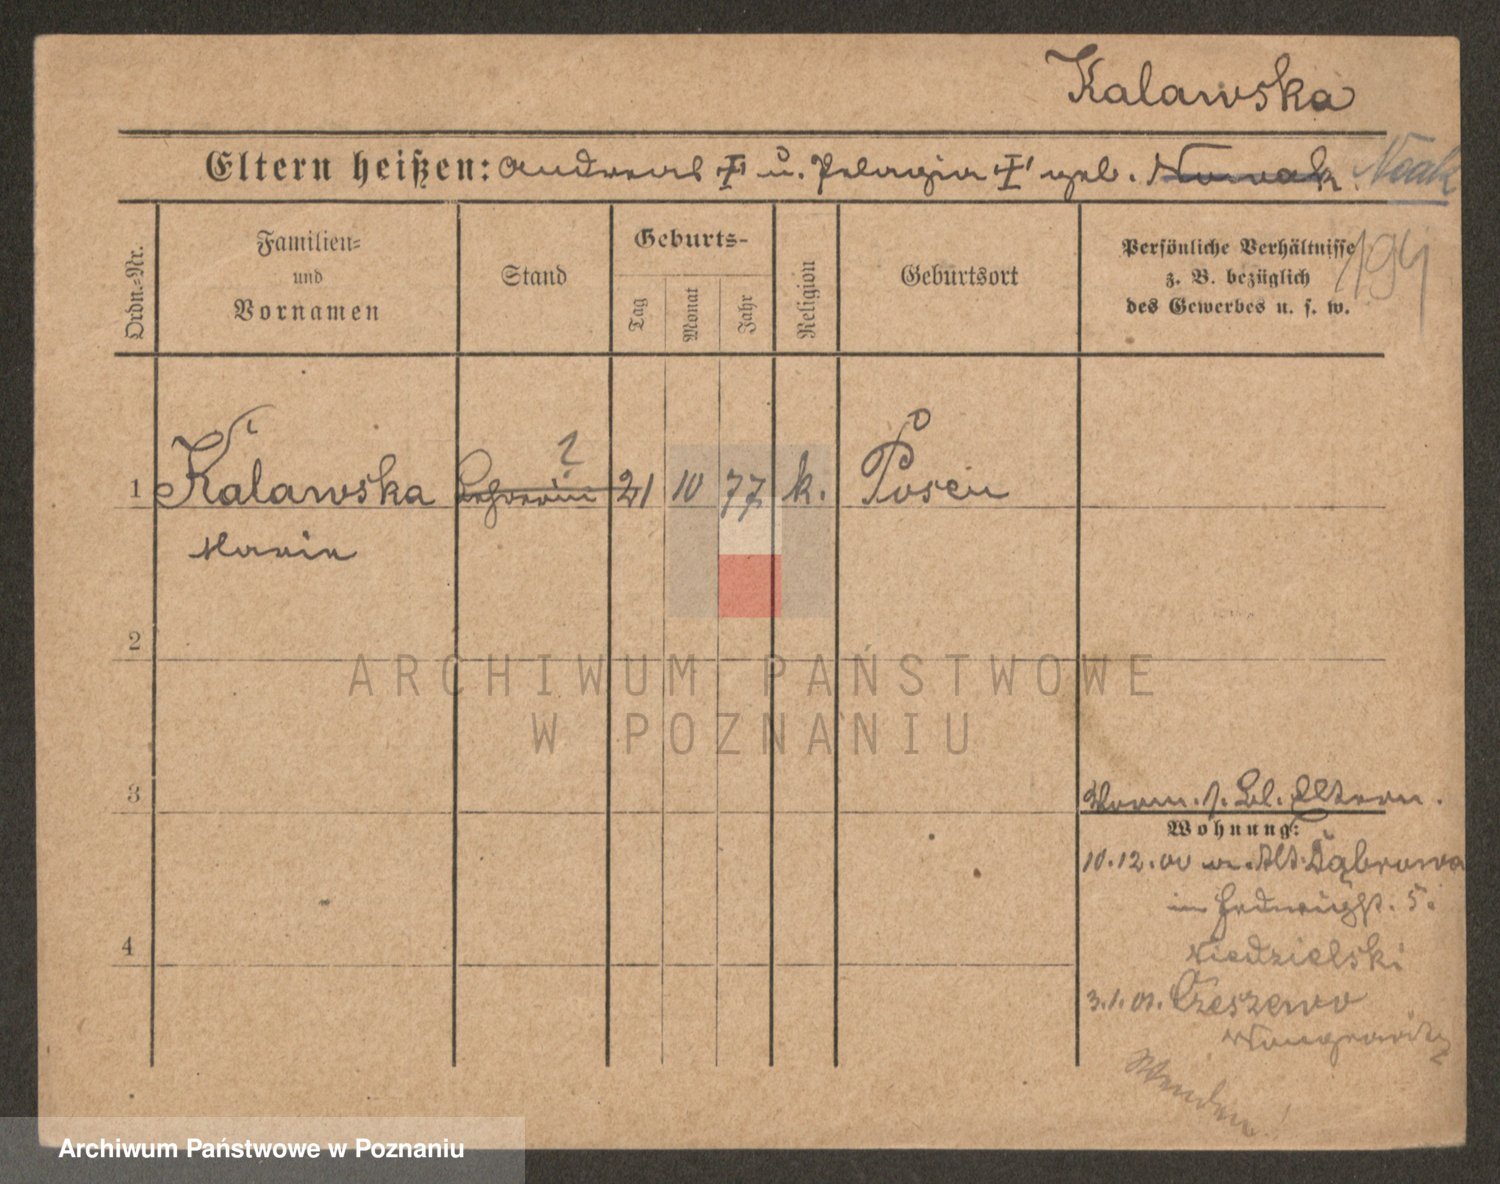 Kalawska
Eltern heißen: Andreas † u. Pelagia † geb. Nowak Noak
Ordn.-Nr.
Familien-
und
Vornamen
Stand
Geburts-
Tag
Monat
Jahr
Religion
Geburtsort
Persönliche Verhältnisse
z. B. bezüglich
des Gewerbes u. s. w.
1 Kalawska Lehrerin ? 21 10 77 k. Posen
Marie
2
3
Vorm. s. Bl. Eltern.
Wohnung:
10.12.00 Alt Dąbrowa
in 5.
Niedzielski
4
3.1.01. Czeszewo
Wongrowitz
Wenden!
ARCHIWUM PAŃSTWOWE
W POZNANIU
Archiwum Państwowe w Poznaniu